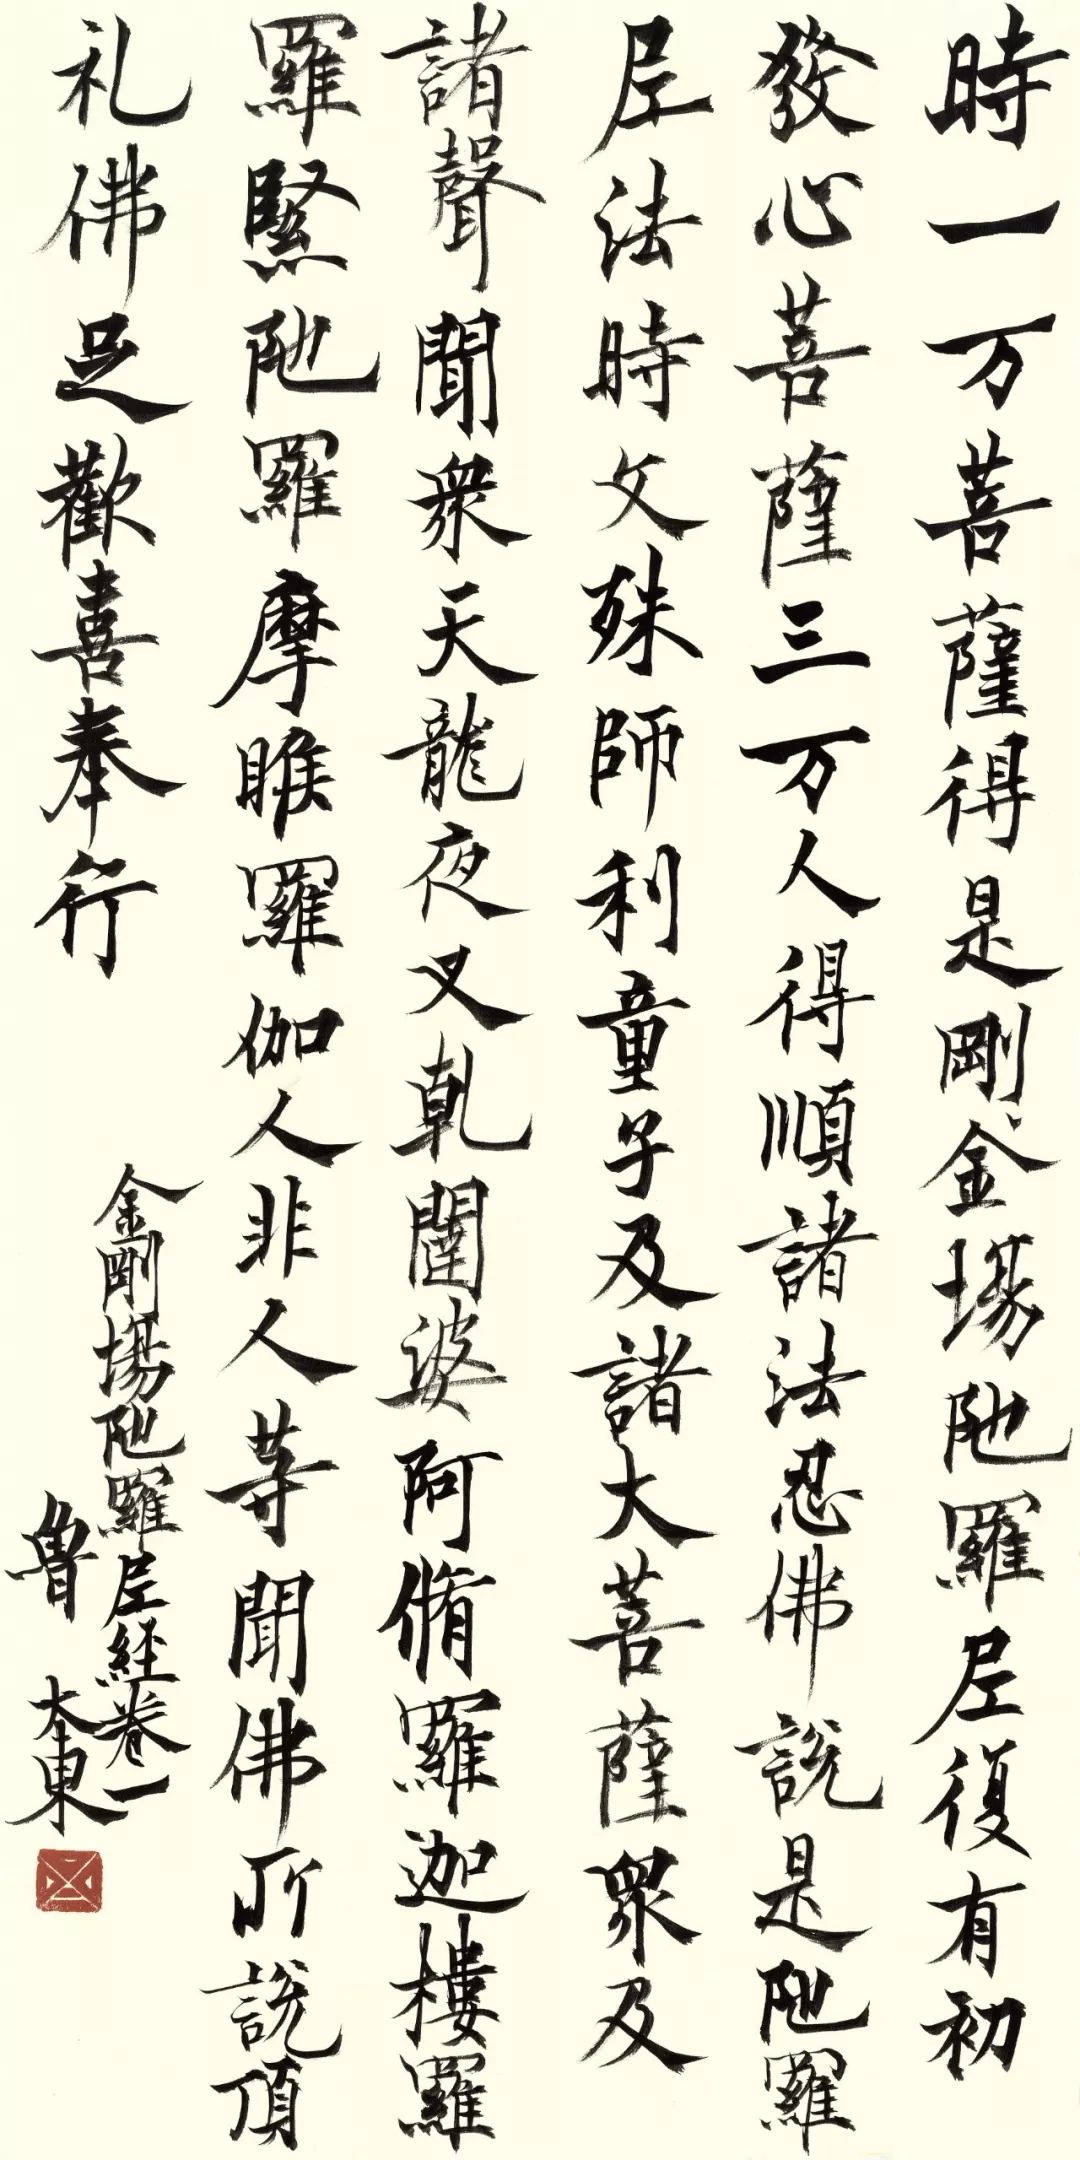 時一万菩薩得是剛金場陁羅尼復有初
發心菩薩三万人得順諸法忍佛說是陁羅
尼法時文殊師利童子及諸大菩薩眾及
諸聲聞衆天龍夜叉乹闥婆阿脩羅迦樓羅
羅緊陁羅摩睺羅伽人非人等聞佛所說頂
礼佛足歡喜奉行
金剛場陁羅尼経卷一
魯大東